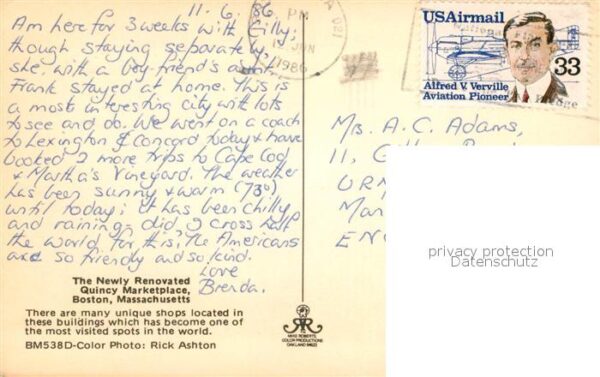 11.6.86.
Am here for 3 weeks with Gilly;
though staying separately,
she, with a boy-friend's aunt.
Frank stayed at home. This is
a most interesting city with lots
to see and do. We went on a coach
to Lexington & Concord today & have
booked 2 more trips to Cape Cod
& Martha's Vineyard. The weather
has been sunny & warm (73°)
until today; it has been chilly
and raining, did I cross half
the world for this. The Americans
are so friendly and so kind.
Love
Brenda.
The Newly Renovated
Quincy Marketplace,
Boston, Massachusetts
There are many unique shops located in
these buildings which has become one of
the most visited spots in the world.
BM538D-Color Photo: Rick Ashton
MIKE ROBERTS
COLOR PRODUCTIONS
OAKLAND 94623
PM
JUN
1986
USAirmail
33
Alfred V. Verville
Aviation Pioneer
Mrs. A.C. Adams,
11,
URM
Man
ENG
privacy protection
Datenschutz